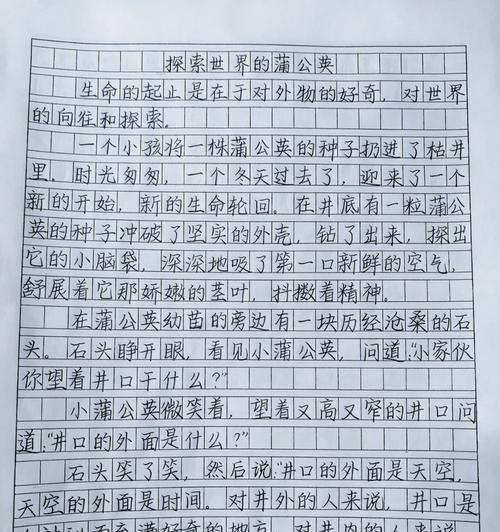 探索世界的蒲公英
生命的起止是在于对外物的好奇，对世界
的向往和探索。
一个小孩将一株蒲公英的种子扔进了枯井
里。时光匆匆，一个冬天过去了，迎来了一个
新的开始，新的生命轮回。在井底有一粒蒲公
英的种子冲破了坚实的外壳，钻了出来，探出
它的小脑袋，深深地吸了第一口新鲜的空气，
舒展着它那娇嫩的茎叶，抖擞着精神。
在蒲公英幼苗的旁边有一块历经沧桑的石
头。石头睁开眼，看见小蒲公英，问道：“小家伙
你望着井口干什么？”
小蒲公英微笑着，望着又高又窄的井口问
道：“井口的外面是什么？”
石头笑了笑，然后说：“井口的外面是天空，
天空的外面是时间。对井外的人来说，井口是
满好奇的地方，对井内的人来说